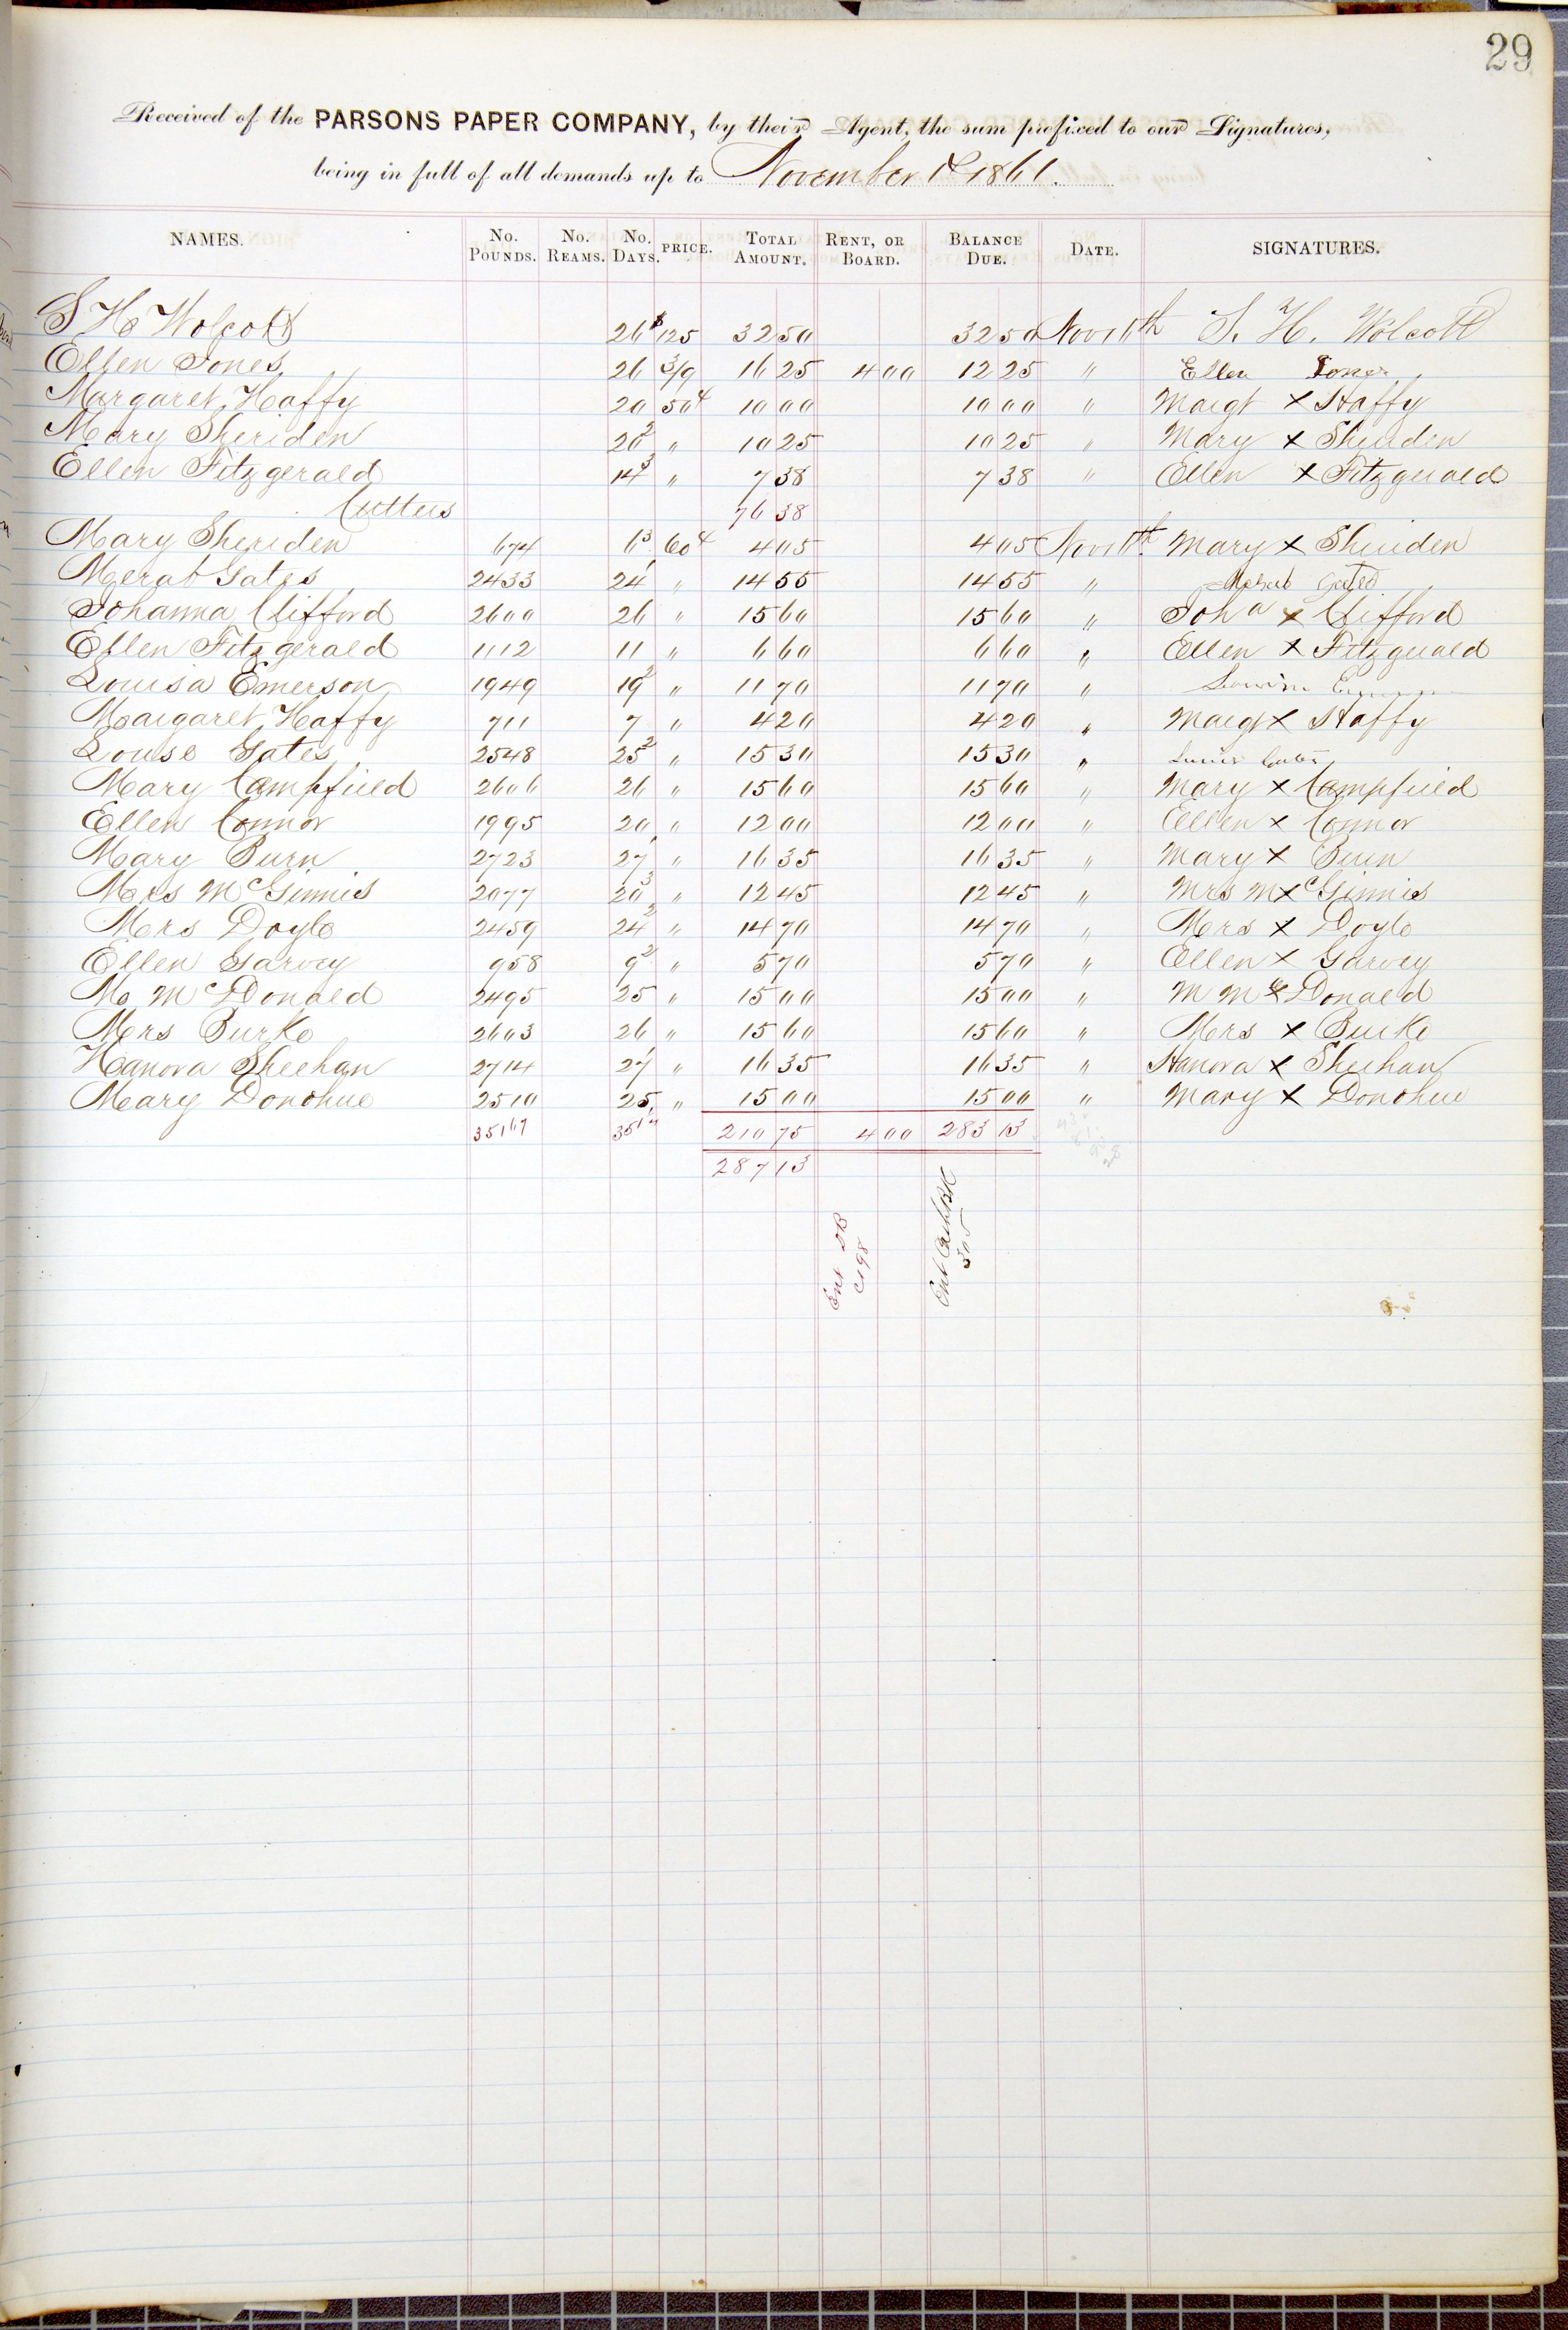 29
Received of the PARSONS PAPER COMPANY, by their Agent, the sum prefixed to our Signatures,
being in full of all demands up to November 1st 1861.
NAMES. No. POUNDS. No. REAMS. No. DAYS. PRICE. TOTAL AMOUNT. RENT, OR BOARD. BALANCE DUE. DATE. SIGNATURES.
S H Wolcott 26 $125 32 50 32 50 Nov 16th S. H. Wolcott
Ellen Jones 26 3/9 16 25 4 00 12 25 " Ellen Jones
Margaret Haffy 20 50¢ 10 00 10 00 " Margt X Haffy
Mary Sheriden 20² " 10 25 10 25 " Mary X Sheriden
Ellen Fitzgerald 14³ " 7 38 7 38 " Ellen X Fitzgerald
Cutters 76 38
Mary Sheriden 674 6³ 60¢ 4 05 4 05 Nov 16th Mary X Sheriden
Merab Gates 2433 24¹ " 14 55 14 55 " Merab Gates
Johanna Clifford 2600 26 " 15 60 15 60 " Joha X Clifford
Ellen Fitzgerald 1112 11 " 6 60 6 60 " Ellen X Fitzgerald
Louisa Emerson 1949 19² " 11 70 11 70 "
Margaret Haffy 711 7 " 4 20 4 20 " Margt X Haffy
Louise Gates 2548 25² " 15 30 15 30 "
Mary Campfield 2606 26 " 15 60 15 60 " Mary X Campfield
Ellen Connor 1995 20 " 12 00 12 00 " Ellen X Connor
Mary Burn 2723 27¹ " 16 35 16 35 " Mary X Burn
Mrs McGinnis 2077 20³ " 12 45 12 45 " Mrs M X cGinnis
Mrs Doyle 2459 24² " 14 70 14 70 " Mrs X Doyle
Ellen Garvey 958 9² " 5 70 5 70 " Ellen X Garvey
M McDonald 2495 25 " 15 00 15 00 " M Mc X Donald
Mrs Burke 2603 26 " 15 60 15 60 " Mrs X Burke
Hanora Sheehan 2714 27¹ " 16 35 16 35 " Hanora X Sheehan
Mary Donohue 2510 25 " 15 00 15 00 " Mary X Donohue
35167 351¹ 210 75 4 00 283 13
287 13
Ent DB
C198
Ent Cash BK
305